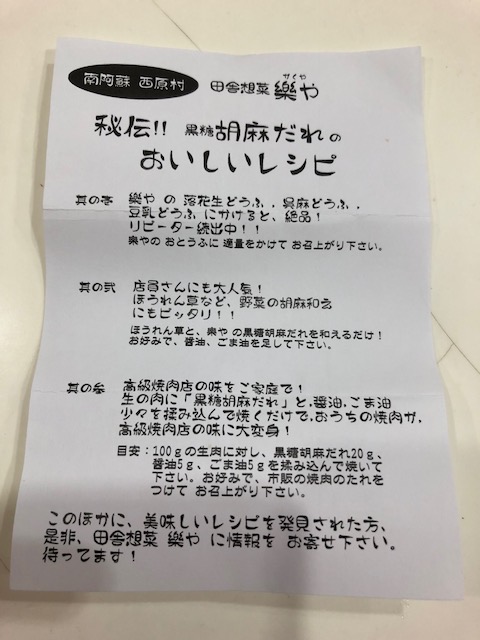 南阿蘇 西原村
田舎想菜 樂や
がくや
秘伝!! 黒糖胡麻だれの
おいしいレシピ
其の壱 樂や の 落花生どうふ、呉麻どうふ、
豆乳どうふ にかけると、絶品!
リピーター続出中!!
樂やの おとうふに 適量をかけて お召上がり下さい。
其の弐 店員さんにも大人気!
ほうれん草など、野菜の胡麻和え
にもピッタリ!!
ほうれん草と、樂や の黒糖胡麻だれを和えるだけ!
お好みで、醤油、ごま油を足して下さい。
其の参 高級焼肉店の味をご家庭で!
生の肉に「黒糖胡麻だれ」と、醤油、ごま油
少々を揉み込んで焼くだけで、おうちの焼肉が、
高級焼肉店の味に大変身!
目安:100gの生肉に対し、黒糖胡麻だれ20g、
醤油5g、ごま油5gを揉み込んで焼いて
下さい。お好みで、市販の焼肉のたれを
つけて お召上がり下さい。
このほかに、美味しいレシピを発見された方、
是非、田舎想菜 樂や に情報を お寄せ下さい。
待ってます!